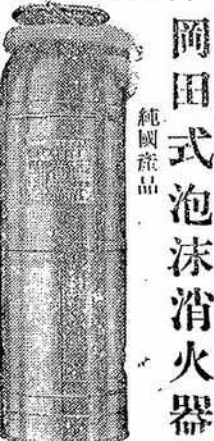 岡田式泡沫消火器
純國産品